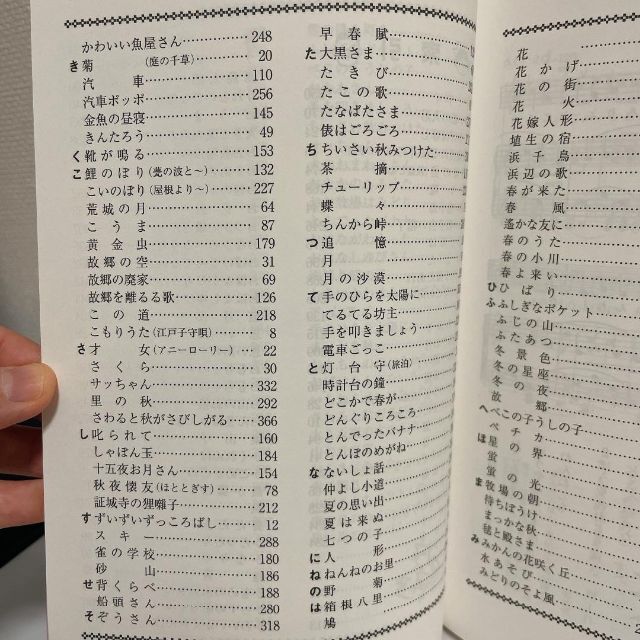 かわいい魚屋さん………248
き菊　　(庭の千草)………20
汽　　車………110
汽車ポッポ………256
金魚の昼寝………145
きんたろう………49
く靴が鳴る………153
こ鯉のぼり(甍の波と〜)………132
こいのぼり(屋根より〜)………227
荒城の月………64
こうま………87
黄金虫………179
故郷の空………31
故郷の廃家………69
故郷を離るる歌………126
この道………218
こもりうた(江戸子守唄)………8
さ才　　女(アニーローリー)………22
さくら………30
サッちゃん………332
里の秋………292
さわると秋がさびしがる………366
し叱られて………160
しゃぼん玉………184
十五夜お月さん………154
秋夜懐友(ほととぎす)………78
証城寺の狸囃子………212
すずいずいずっころばし………12
スキー………288
雀の学校………180
砂　　山………186
せ背くらべ………188
船頭さん………280
そぞうさん………318
早春賦………
た大黒さま………
たきび………
たこの歌………
たなばたさま………
俵はごろごろ………
ちちいさい秋みつけた………
茶　　摘………
チューリップ………
蝶　　々………
ちんから峠………
つ追　　憶………
月………
月の沙漠………
て手のひらを太陽に………
てるてる坊主………
手を叩きましょう………
電車ごっこ………
と灯台守(旅泊)………
時計台の鐘………
どこかで春が………
どんぐりころころ………
とんでったバナナ………
とんぼのめがね………
なないしょ話………
仲よし小道………
夏の思い出………
夏は来ぬ………
七つの子………
に人　　形………
ねねんねのお里………
の野　　菊………
は箱根八里………
鳩………
花………
花かげ………
花の街………
花　　火………
花嫁人形………
埴生の宿………
浜千鳥………
浜辺の歌………
春が来た………
春　　風………
遙かな友に………
春のうた………
春の小川………
春よ来い………
ひひばり………
ふふしぎなポケット………
ふじの山………
ふたあつ………
冬景色………
冬の星座………
冬の夜………
故　　郷………
へべこの子うしの子………
ペチカ………
ほ星の界………
蛍………
蛍の光………
ま牧場の朝………
待ちぼうけ………
まっかな秋………
毬と殿さま………
みみかんの花咲く丘………
水あそび………
みどりのそよ風………